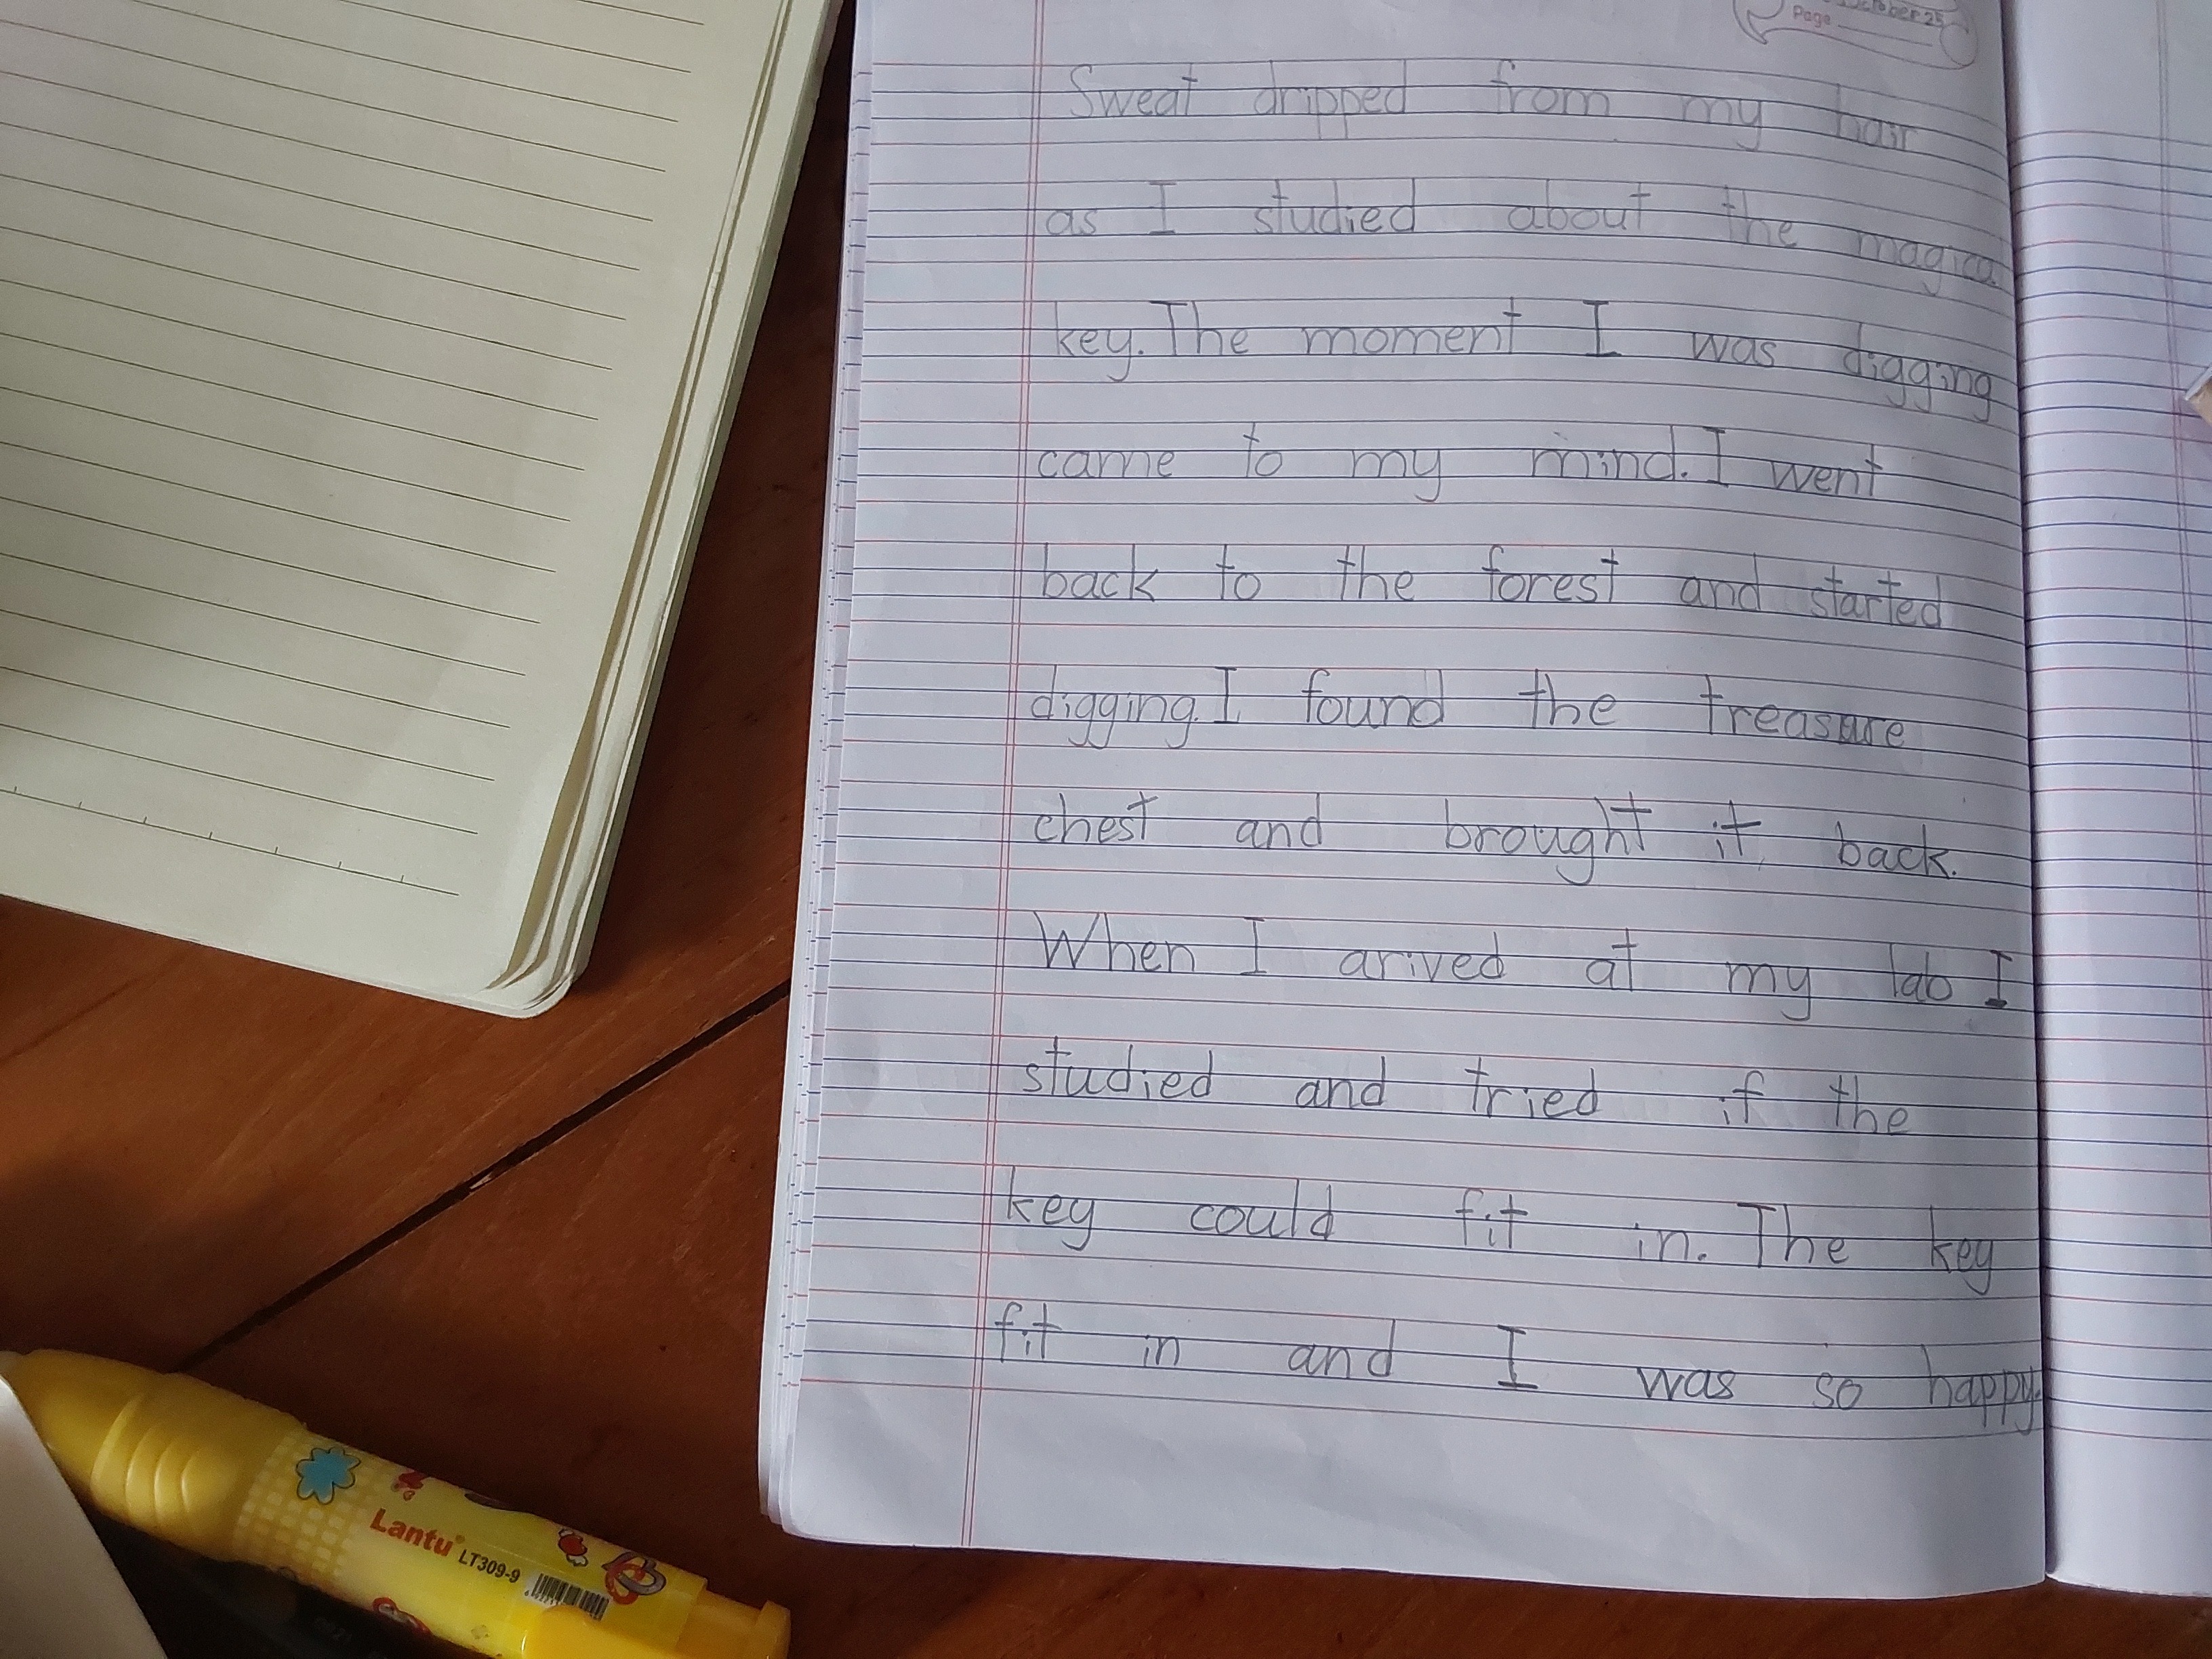 October 25
Page
Sweat dripped from my hair
as I studied about the magical
key. The moment I was digging
came to my mind. I went
back to the forest and started
digging. I found the treasure
chest and brought it back.
When I arived at my lab I
studied and tried if the
key could fit in. The key
fit in and I was so happy.
Lantu LT309-9